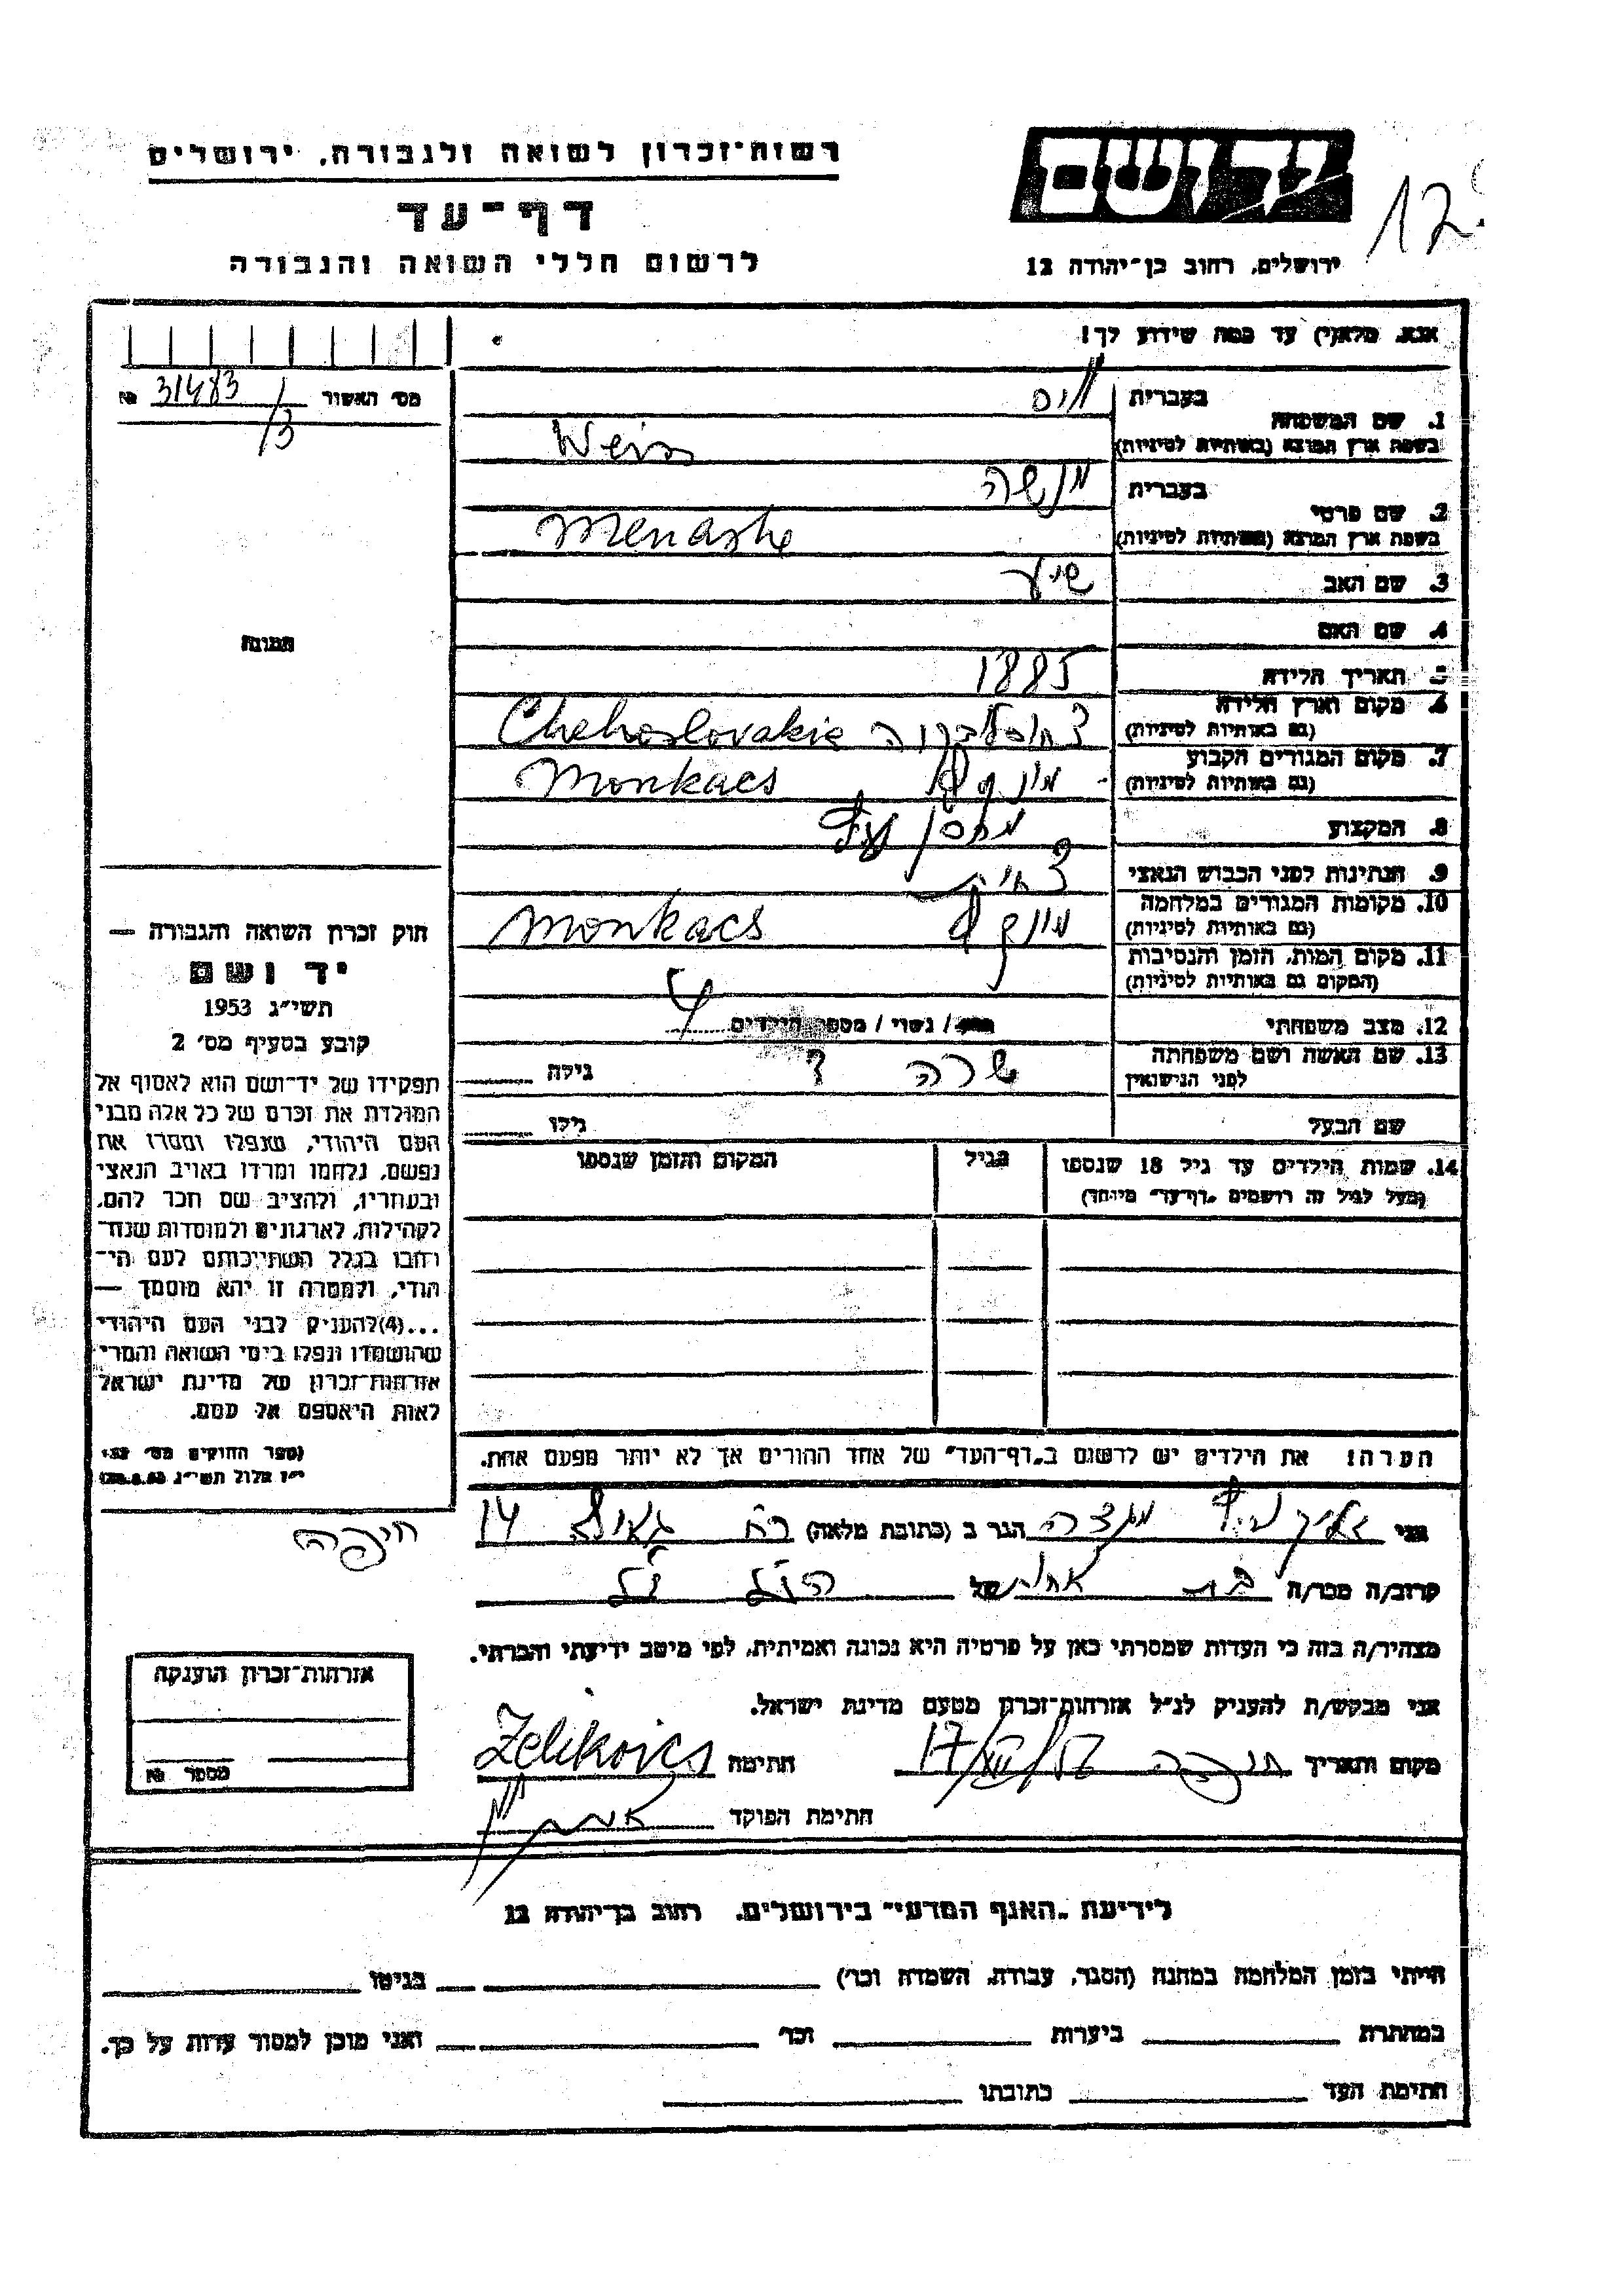 רשות־זכרון לשואה ולגבורה, ירושלים
יד ושם
דף־עד
לרשום חללי השואה והגבורה
ירושלים, רחוב בן־יהודה 12
אנא, מלא(י) עד כמה שידוע לך!
מס' האשור 31483 №
/3
1. שם המשפחה
בעברית ווייס
בשפת ארץ המוצא (באותיות לטיניות) Weiss
2. שם פרטי
בעברית מנשה
בשפת ארץ המוצא (באותיות לטיניות) Menashe
3. שם האב
4. שם האם
תמונה
5. תאריך הלידה 1885
6. מקום וארץ הלידה
(גם באותיות לטיניות) Chehoslovakie
7. מקום המגורים הקבוע
(גם באותיות לטיניות) Monkacs
8. המקצוע
9. הנתינות לפני הכבוש הנאצי
10. מקומות המגורים במלחמה
(גם באותיות לטיניות) Monkacs
11. מקום המות, הזמן והנסיבות
(המקום גם באותיות לטיניות)
12. מצב משפחתי / נשוי / מספר הילדים 4
13. שם האשה ושם משפחתה
לפני הנישואין שרה גילה
שם הבעל גילו
14. שמות הילדים עד גיל 18 שנספו
(מעל לגיל זה רושמים „דף־עד” מיוחד)
בגיל
המקום והזמן שנספו
חוק זכרון השואה והגבורה —
יד ושם
תשי״ג 1953
קובע בסעיף מס׳ 2
תפקידו של יד־ושם הוא לאסוף אל
המולדת את זכרם של כל אלה מבני
העם היהודי, שנפלו ומסרו את
נפשם, נלחמו ומרדו באויב הנאצי
ובעוזריו, ולהציב שם וזכר להם,
לקהילות, לארגונים ולמוסדות שנח־
רבו בגלל השתייכותם לעם הי־
הודי, ולמטרה זו יהא מוסמך —
...(4) להעניק לבני העם היהודי
שהושמדו ונפלו בימי השואה והמרי
אזרחות־זכרון של מדינת ישראל
לאות היאספם אל עמם.
(ספר החוקים מס׳ 132
י״ז אלול תשי״ג 28.8.53)
הערה! את הילדים יש לרשום ב„דף־העד” של אחד ההורים אך לא יותר מפעם אחת.
אני הגר ב (כתובת מלאה) רח 14
חיפה
קרוב/ה מכר/ה בת אחות של
מצהיר/ה בזה כי העדות שמסרתי כאן על פרטיה היא נכונה ואמיתית, לפי מיטב ידיעתי והכרתי.
אני מבקש/ת להעניק לנ״ל אזרחות־זכרון מטעם מדינת ישראל.
מקום ותאריך חיפה חתימה Zelikovics
חתימת הפוקד
אזרחות־זכרון הוענקה
מספר №
לידיעת „האגף המדעי” בירושלים, רחוב בן־יהודה 12
הייתי בזמן המלחמה במחנה (הסגר, עבודה, השמדה וכו׳) בגיטו
במחתרת ביערות וכו׳ ואני מוכן למסור עדות על כך.
חתימת העד כתובתו